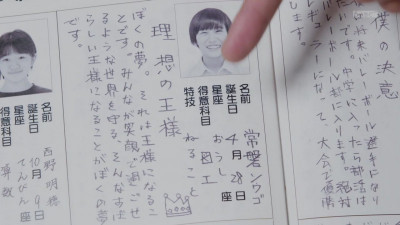 僕の決意
バレーボール選手になり
中学に入ったら部活は
ボール部に入ります。絶対
ギュラーになって、大会で優勝
します。
名前 常磐ソウゴ
誕生日 4月28日
星座 おうし座
得意科目 図工
特技 ねること
理想の王様
ぼくの夢。それは王様になるこ
とです。みんなが笑顔で過ごせ
るような世界を守る、そんなすば
らしい王様になることがぼくの夢
名前 西野明穂
誕生日 10月9日
星座 てんびん座
得意科目 算数